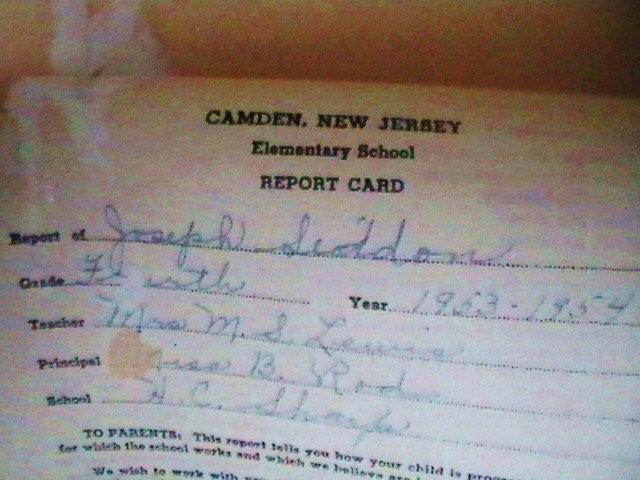 CAMDEN, NEW JERSEY
Elementary School
REPORT CARD
Report of Joseph Siddon
Grade
Year 1953-1954
Teacher Mrs M. S. Lewis
Principal B. Rod
School H. C. Sharp
TO PARENTS: This report tells you how your child is
for which the school works and which we believe are
We wish to work with